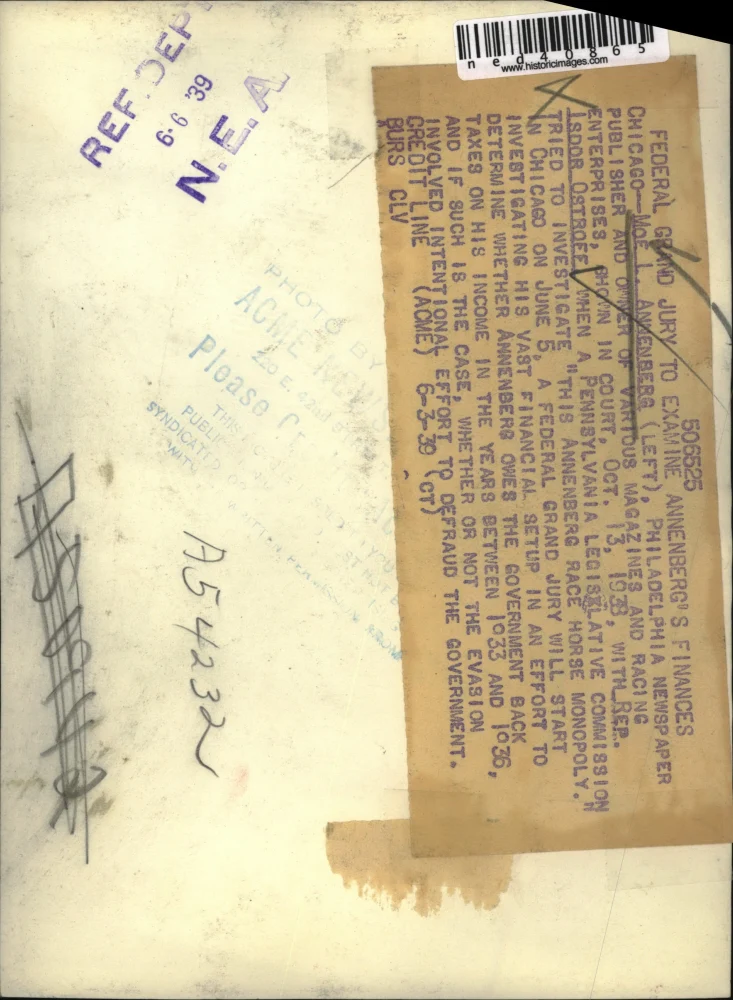 ned40865
www.historicimages.com
REF. DEPT
6-6 '39
N.E.A.
506525
FEDERAL GRAND JURY TO EXAMINE ANNENBERG'S FINANCES
CHICAGO--MOE L. ANNENBERG (LEFT), PHILADELPHIA NEWSPAPER
PUBLISHER AND OWNER OF VARIOUS MAGAZINES AND RACING
ENTERPRISES, SHOWN IN COURT, OCT. 13, 1938, WITH REP.
ISDOR OSTROFF WHEN A PENNSYLVANIA LEGISLATIVE COMMISSION
TRIED TO INVESTIGATE "THIS ANNENBERG RACE HORSE MONOPOLY."
IN CHICAGO ON JUNE 5, A FEDERAL GRAND JURY WILL START
INVESTIGATING HIS VAST FINANCIAL SETUP IN AN EFFORT TO
DETERMINE WHETHER ANNENBERG OWES THE GOVERNMENT BACK
TAXES ON HIS INCOME IN THE YEARS BETWEEN 1933 AND 1936,
AND IF SUCH IS THE CASE, WHETHER OR NOT THE EVASION
INVOLVED INTENTIONAL EFFORT TO DEFRAUD THE GOVERNMENT.
CREDIT LINE (ACME) 6-3-39 (CT)
BURS CLV
PHOTO BY
ACME
220 E. 42nd
Please
THIS
PUBLI
SYNDICATED
WIT
A54232